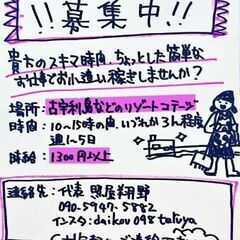 !!募集中!!
貴方のスキマ時間、ちょっとした簡単な
お仕事でお小遣い稼ぎしませんか？
場所：古宇利島などのリゾートコテージ
時間：10～15時の間、いづれか3h程度
週1～5日
時給：1300円以上
連絡先：代表 照屋翔野
090-5947-5882
インスタ：daikou098teruya